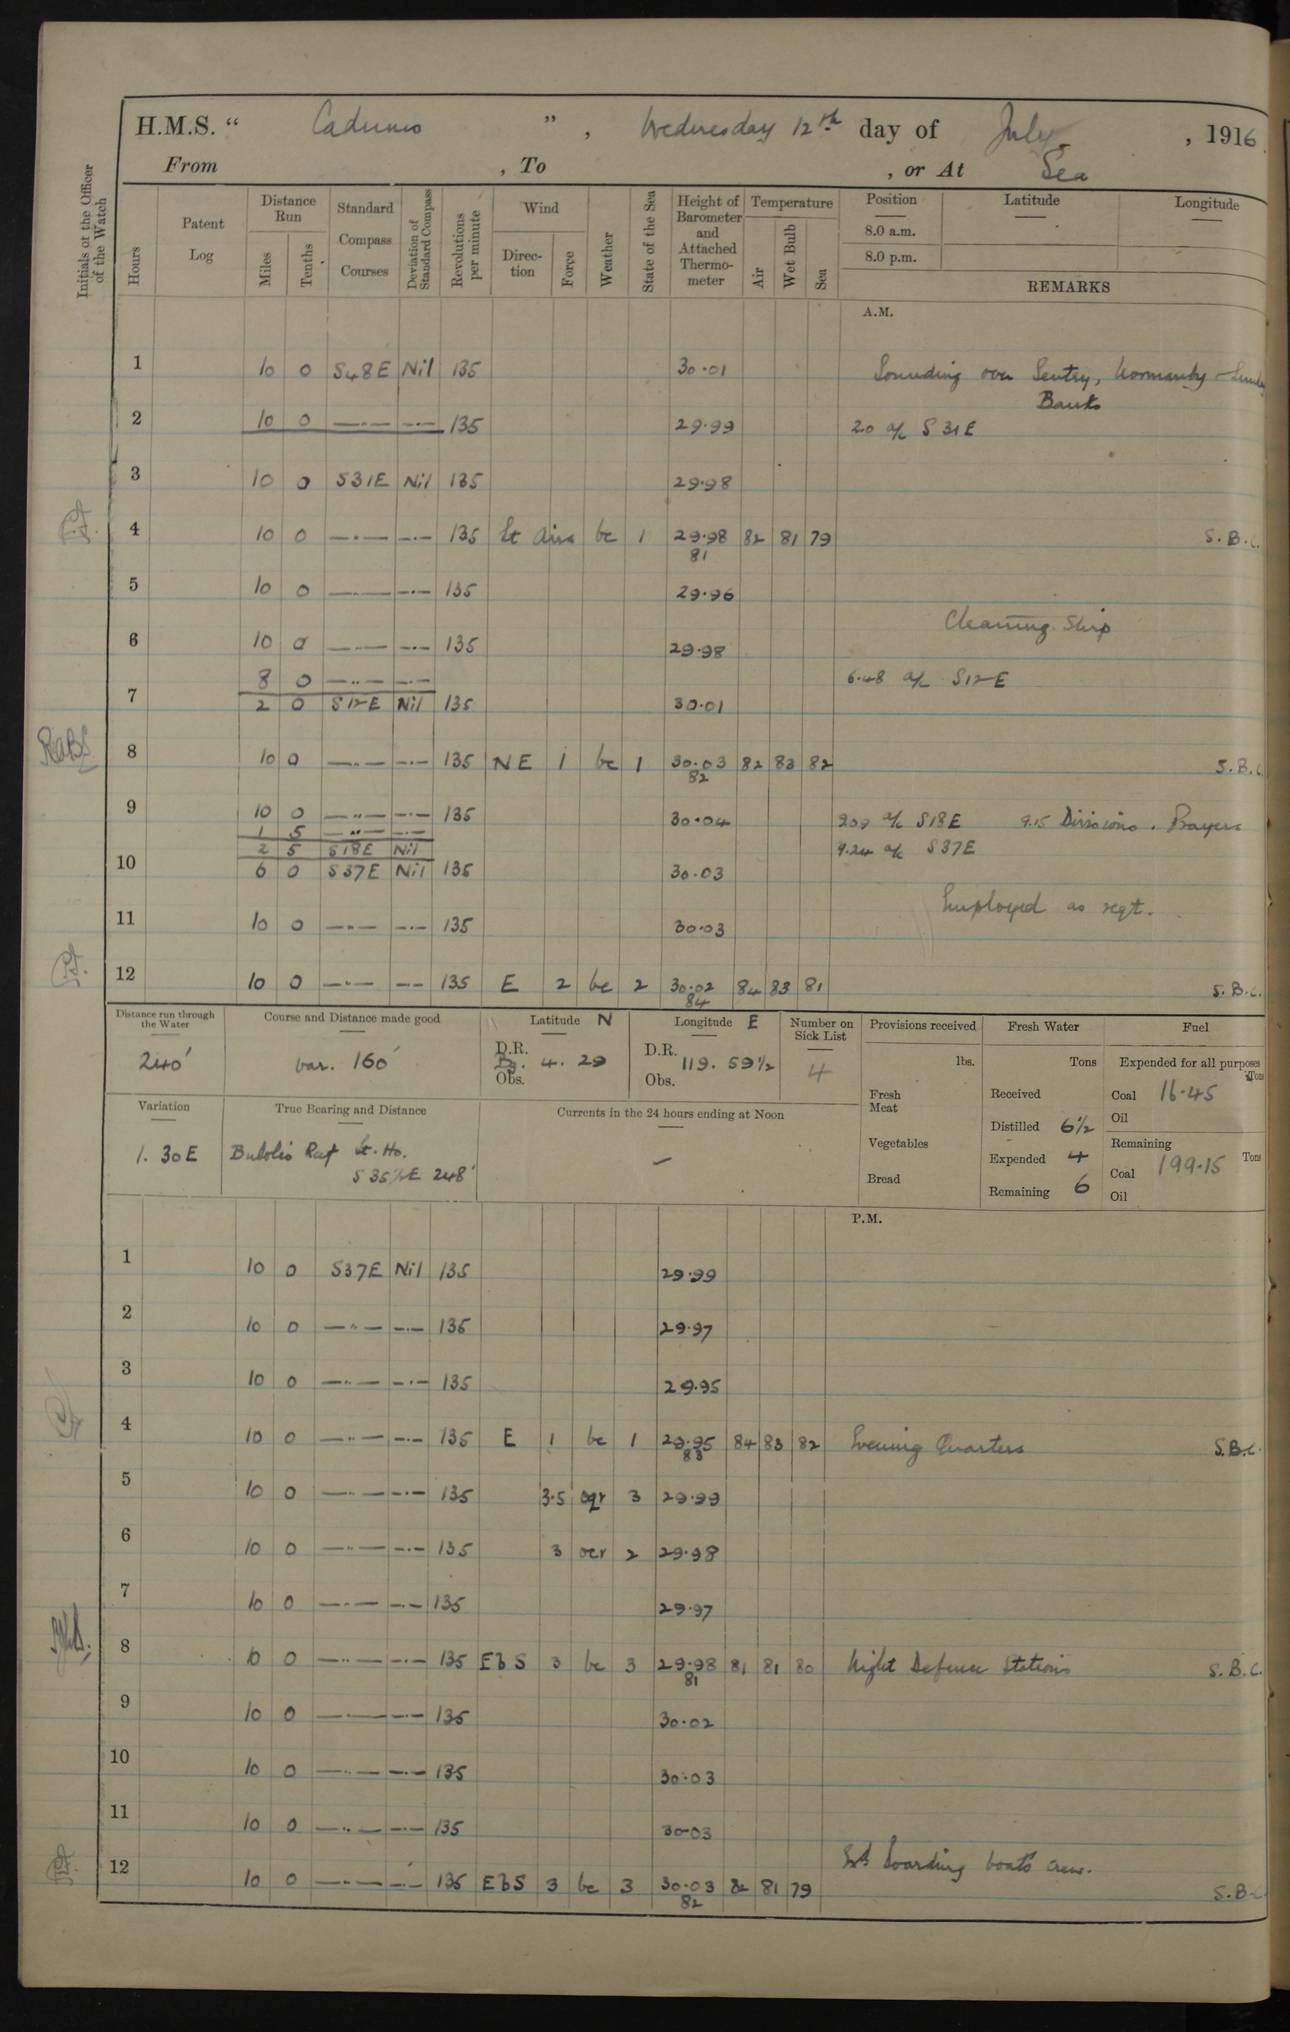 H.M.S. " Cadmus ", Wednesday 12th day of July, 1916
From , To , or At Sea
Initials of the Officer of the Watch
Hours Patent Log Distance Run Miles Tenths Standard Compass Courses Deviation of Standard Compass Revolutions per minute Wind Direction Force Weather State of the Sea Height of Barometer and Attached Thermometer Temperature Air Wet Bulb Sea Position Latitude Longitude
8.0 a.m.
8.0 p.m.
REMARKS
A.M.
1 10 0 S48E Nil 135 30.01 Sounding over Sentry, Normanby
Banks
2 10 0 —.— —.— 135 29.99 2.0 a/c S 31 E
3 10 0 S31E Nil 135 29.98
4 10 0 —.— —.— 135 Lt Airs bc 1 29.98 82 81 79 S.B.C.
81
5 10 0 —.— —.— 135 29.96
Cleaning Ship
6 10 0 —.— —.— 135 29.98
8 0 —.— —.— 6.48 a/c S12E
7 2 0 S12E Nil 135 30.01
8 10 0 —.— —.— 135 NE 1 bc 1 30.03 82 83 82 S.B.C.
82
9 10 0 —"— —.— 135 30.04 9.09 a/c S18E 9.15 Divisions. Prayers
1 5 —"— —.—
2 5 S18E Nil 9.24 a/c S37E
10 6 0 S37E Nil 135 30.03
Employed as reqt.
11 10 0 —.— —.— 135 30.03
12 10 0 —.— —— 135 E 2 bc 2 30.02 84 83 81 S.B.C.
84
Distance run through the Water Course and Distance made good Latitude N Longitude E Number on Sick List Provisions received Fresh Water Fuel
240' var. 160' D.R. Obs. 4. 29 D.R. Obs. 119. 59½ 4 lbs. Tons Expended for all purposes Tons
Fresh Meat Received Coal 16.45
Oil
Variation True Bearing and Distance Currents in the 24 hours ending at Noon Distilled 6½
Vegetables Remaining
1. 30E Lt. Ho. — Expended 4 Coal 199.15 Tons
S 35½E 248' Bread Remaining 6 Oil
P.M.
1 10 0 S37E Nil 135 29.99
2 10 0 —"— —.— 135 29.97
3 10 0 —.— —.— 135 29.95
4 10 0 —"— —.— 135 E 1 bc 1 29.95 84 83 82 Evening Quarters S.B.C.
83
5 10 0 —.— —.— 135 3.5 oqr 3 29.99
6 10 0 —.— —.— 135 3 ocr 2 29.98
7 10 0 —.— —.— 135 29.97
8 10 0 —.— —.— 135 EbS 3 bc 3 29.98 81 81 80 Night Defence Stations S.B.C.
81
9 10 0 —.— —.— 135 30.02
10 10 0 —.— —.— 135 30.03
11 10 0 —.— —.— 135 30.03
boarding boats crew.
12 10 0 —.— —.— 135 EbS 3 bc 3 30.03 82 81 79 S.B.C.
82